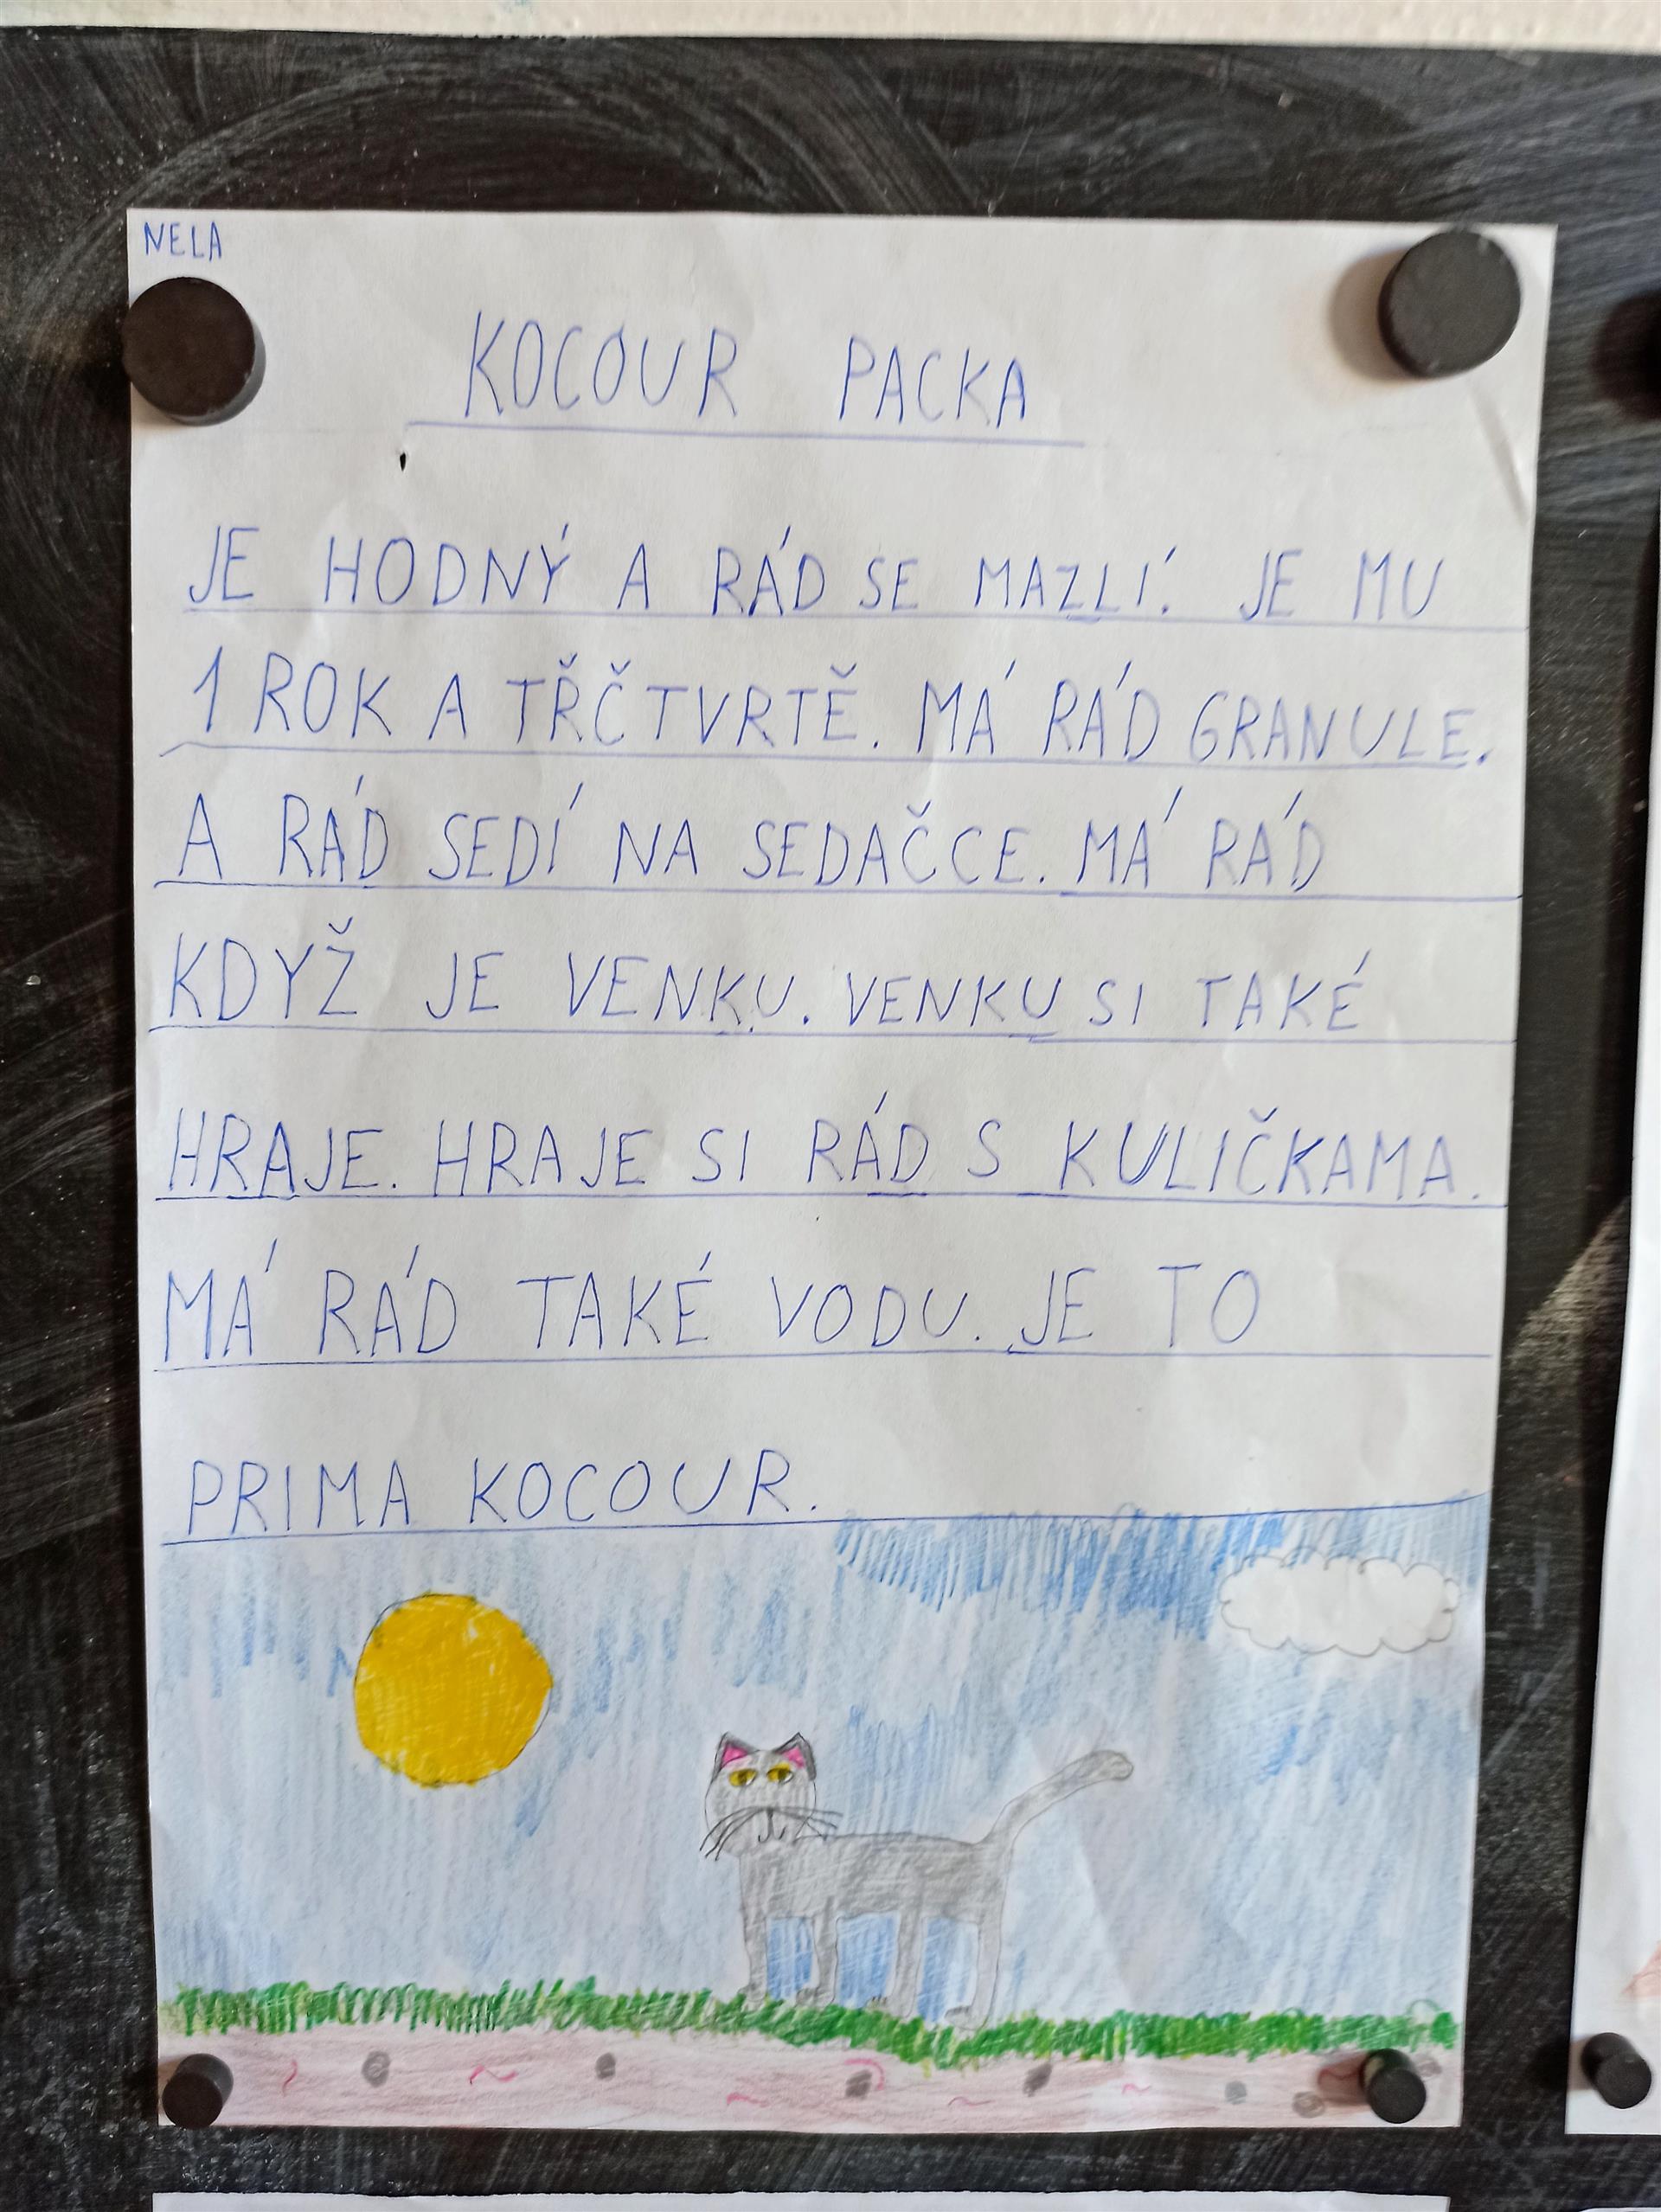 NELA
KOCOUR PACKA
JE HODNÝ A RÁD SE MAZLÍ. JE MU
1 ROK A TŘČTVRTĚ. MÁ RÁD GRANULE.
A RÁD SEDÍ NA SEDAČCE. MÁ RÁD
KDYŽ JE VENKU. VENKU SI TAKÉ
HRAJE. HRAJE SI RÁD S KULIČKAMA.
MÁ RÁD TAKÉ VODU. JE TO
PRIMA KOCOUR.